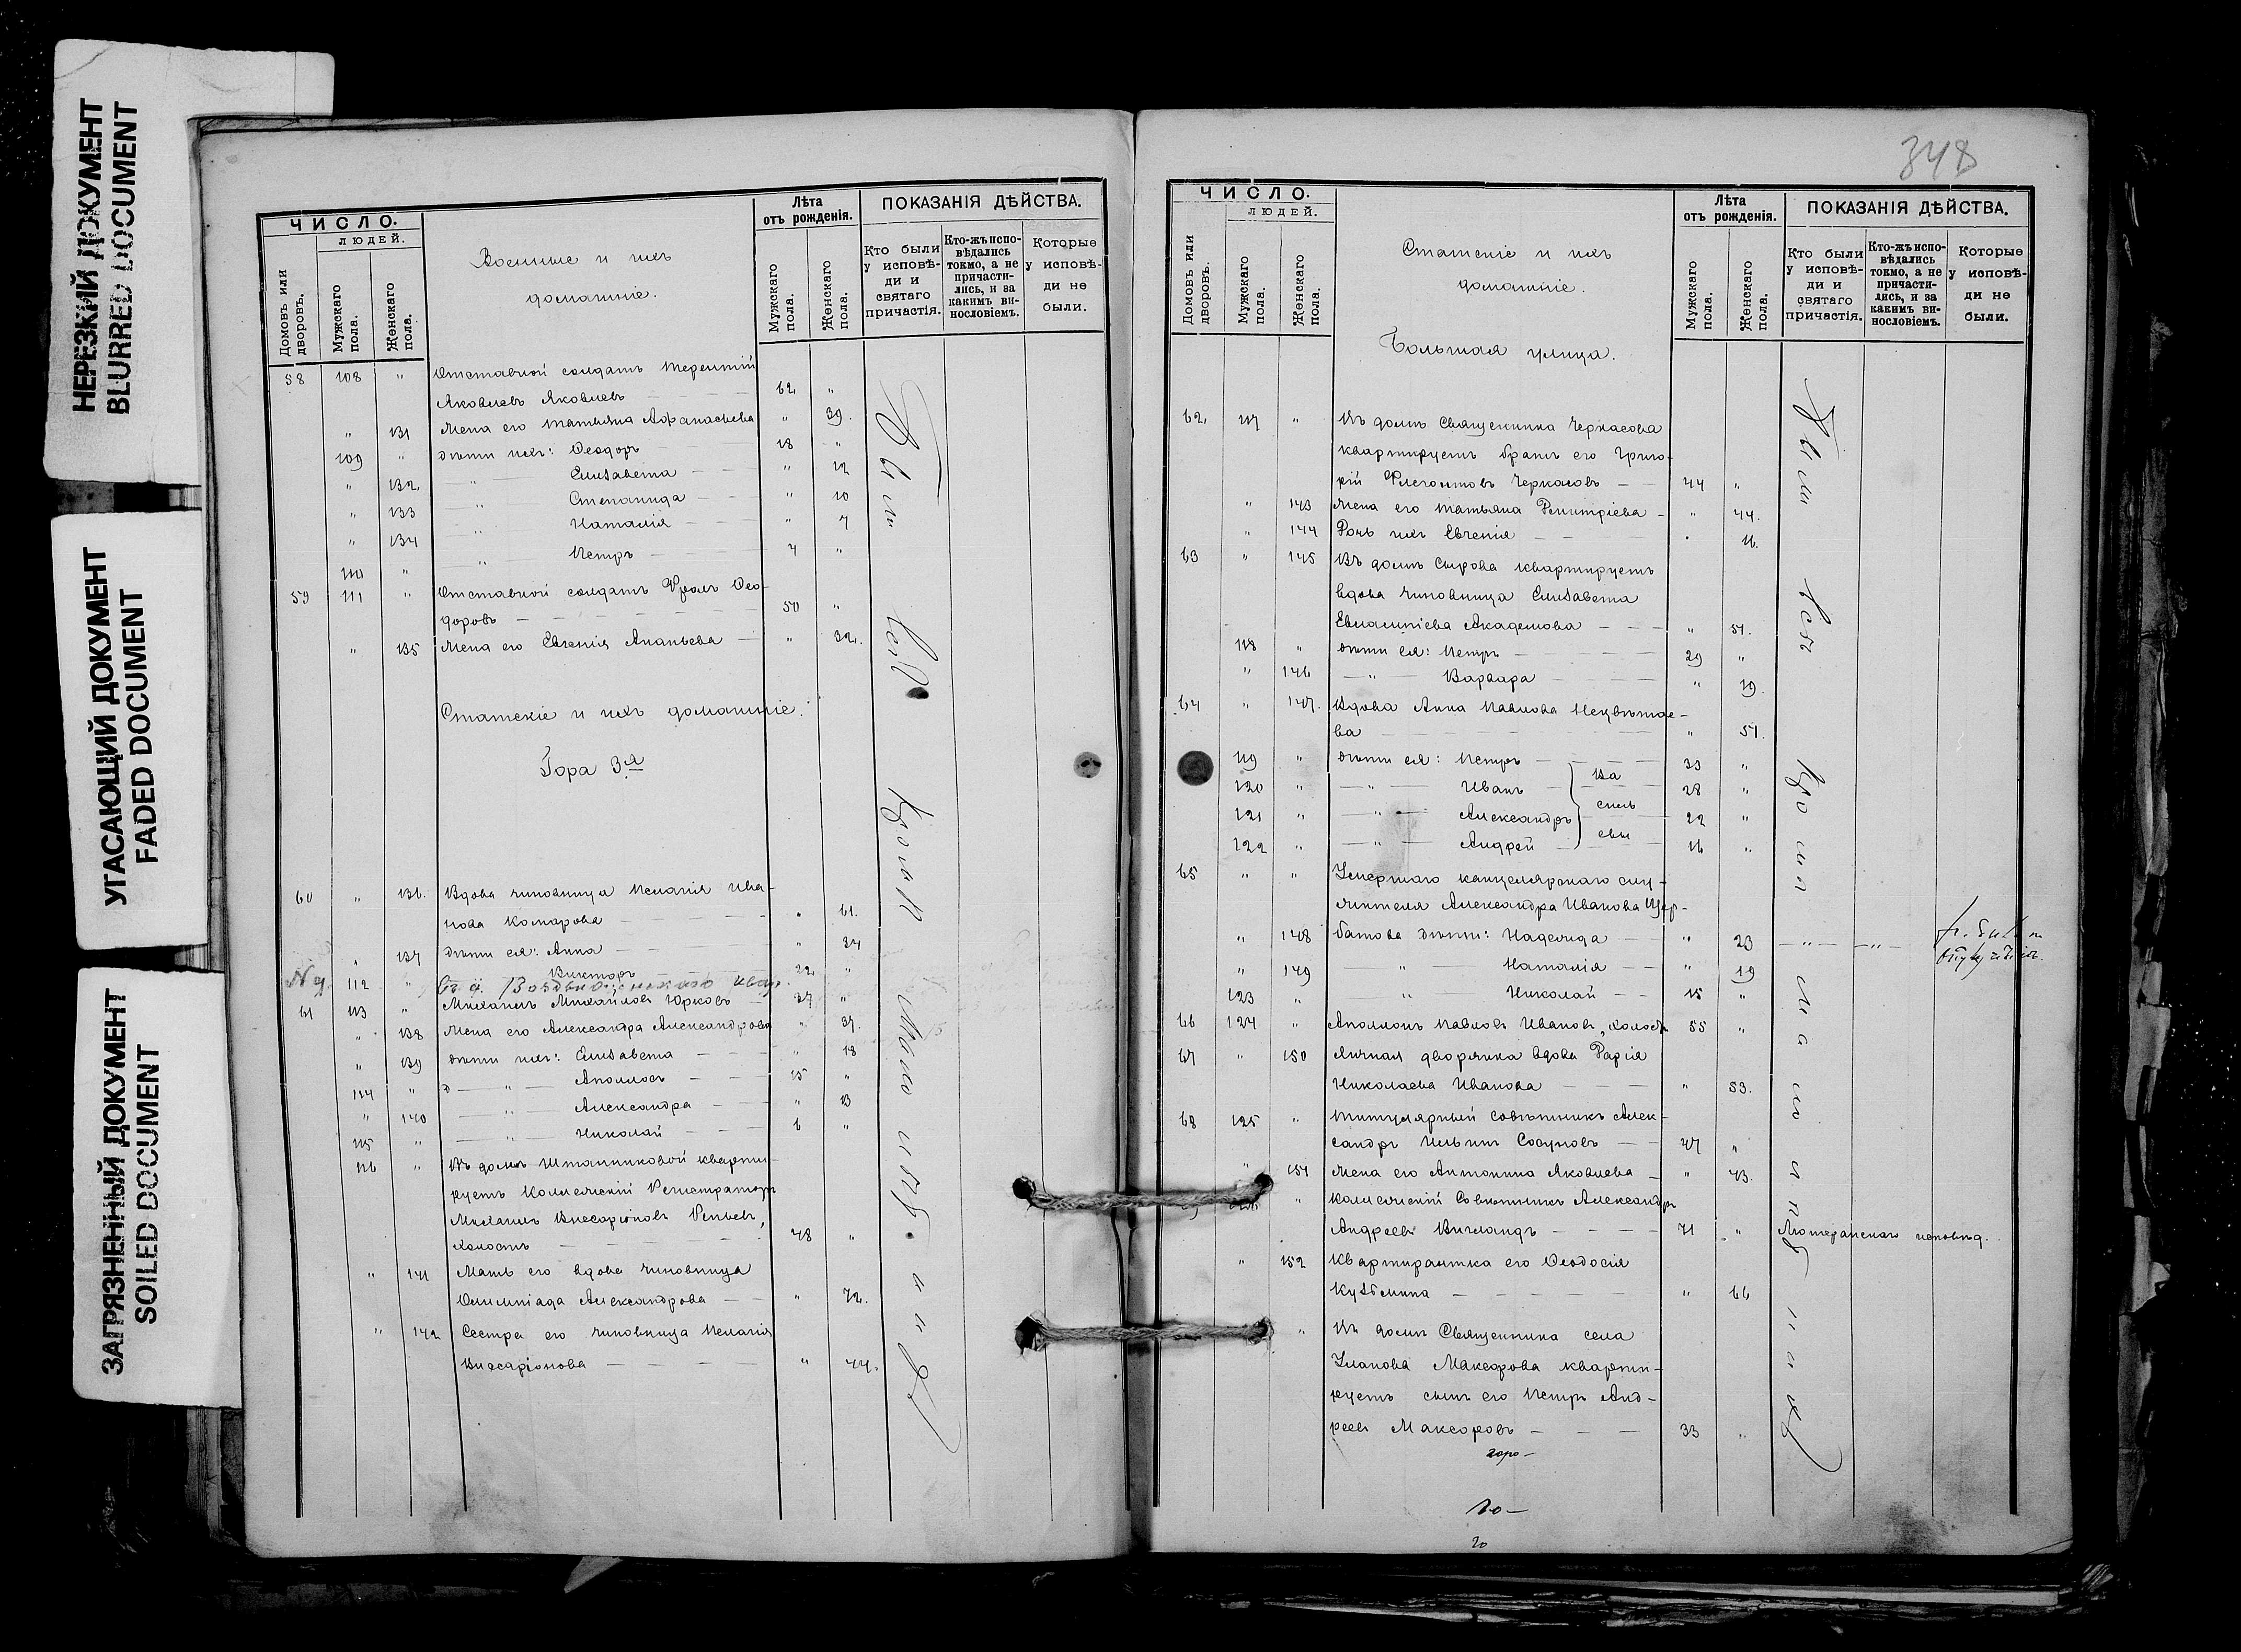 НЕРЕЗКИЙ ДОКУМЕНТ
BLURRED DOCUMENT
УГАСАЮЩИЙ ДОКУМЕНТ
FADED DOCUMENT
ЗАГРЯЗНЕННЫЙ ДОКУМЕНТ
SOILED DOCUMENT
ЧИСЛО.
ЛЮДЕЙ.
Домовъ или дворовъ.
Мужскаго пола.
Женскаго пола.
Военные и ихъ
домашніе.
Лѣта
отъ рожденія.
Мужскаго пола.
Женскаго пола.
ПОКАЗАНІЯ ДѢЙСТВА.
Кто были у исповѣ- ди и святаго причастія.
Кто-жъ испо- вѣдались токмо, а не причасти- лись, и за какимъ ви- нословіемъ.
Которые у исповѣ- ди не были.
58 108 " Отставной солдатъ Терентій
Яковлевъ Яковлевъ — 62 "
" 131 Жена его Татьяна Афанасьева " 39.
109 " дѣти ихъ: Ѳеодоръ 18 "
" 132 — " — Елизавета — " 12
" 133 — " — Степанида — " 10
" 134 — " — Наталія — " 7
110 " — " — Петръ — 4 "
59 111 " Отставной солдатъ Фролъ Ѳео-
доровъ — 50 "
" 135 Жена его Евгенія Ананьева — " 32.
Статскіе и ихъ домашніе.
Гора 3я
60 " 136. Вдова чиновница Пелагія Ива-
нова Комарова — " 61.
" 137 дѣти ея: Анна — " 34
112 " Викторъ 22 "
61 113 " Михаилъ Михайловъ Юрковъ — 37 "
" 138 Жена его Александра Александрова " 37.
" 139 дѣти ихъ: Елизавета — " 18
114 " — " — Аполлосъ — 15 "
" 140 — " — Александра — " 13
115 " — " — Николай — 6 "
116 " Въ домѣ Штанниковой кварти-
руетъ Коллежскій Регистраторъ
Михаилъ Виссаріоновъ Репьевъ,
холостъ — 48 "
" 141 Мать его вдова чиновница
Олимпіада Александрова — " 72.
" 142 Сестра его чиновница Пелагія
Виссаріонова — " 44.
Были всѣ кромѣ
348
ЧИСЛО.
ЛЮДЕЙ.
Домовъ или дворовъ.
Мужскаго пола.
Женскаго пола.
Статскіе и ихъ
домашніе.
Большая улица.
Лѣта
отъ рожденія.
Мужскаго пола.
Женскаго пола.
ПОКАЗАНІЯ ДѢЙСТВА.
Кто были у исповѣ- ди и святаго причастія.
Кто-жъ испо- вѣдались токмо, а не причасти- лись, и за какимъ ви- нословіемъ.
Которые у исповѣ- ди не были.
62 117 " Въ домѣ Священника Черкасова
квартируетъ братъ его Григо-
рій Флегонтовъ Черкасовъ — 44 "
" 143 Жена его Татьяна Димитріева — " 44.
" 144 Дочь ихъ Евгенія — " 16.
63 " 145 Въ домѣ Сырова квартируетъ
вдова чиновница Елизавета
Евлампіева Академова — " 51.
118 " дѣти ея: Петръ — 29 "
" 146 — " — Варвара — " 19.
64 " 147. Вдова Анна Павлова
ва — " 51.
119 " дѣти ея: Петръ — 33 "
120 " — " — Иванъ — Ва 28 "
121 " — " — Александръ силь 22 "
122 " — " — Андрей — евы 16 "
65 " " Умершаго канцелярскаго слу-
жителя Александра Иванова Щер-
" 148 батова дѣти: Надежда — " 23 — " — — " —
" 149 — " — Наталія — " 19
123 " — " — Николай — 15 "
66 124 " Аполлонъ Павловъ Ивановъ, холостъ 55 "
67 " 150 Личная дворянка вдова Дарія
Николаева Иванова — " 53.
68 125 " Титулярный Совѣтникъ Алек-
сандръ Ильинъ Сосуновъ — 47 "
" 151 Жена его Антонина Яковлева — " 43.
" Коллежскій Совѣтникъ Александръ
Андреевъ Вигландъ — 71 " Лютеранскаго исповѣд.
" 152 Квартирантка его Ѳеодосія
Кузьмина — " 66
" Въ домѣ Священника села
Уланова Максорова кварти-
руетъ сынъ его Петръ Анд-
реевъ Максоровъ — 33 "
Были всѣ кромѣ